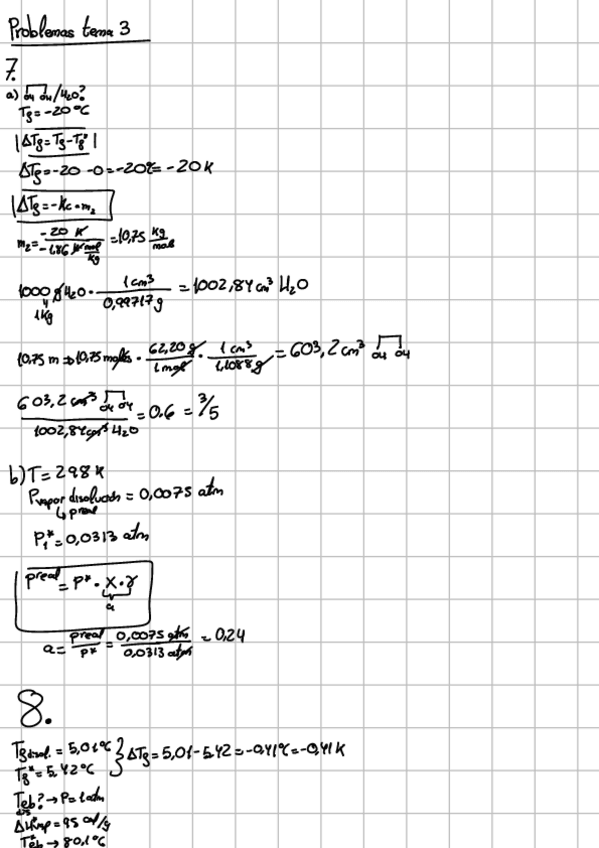 Problemas tema 3
7.
a) OH OH/H₂O?
Tf = -20°C
|ΔTf = Tf - Tf*|
ΔTf = -20 - 0 = -20°C = -20 K
ΔTf = -Kc · m₂
m₂ = -20 K / -1,86 K mol/Kg = 10,75 Kg/mol
1000 g H₂O · 1 cm³ / 0,99717 g = 1002,84 cm³ H₂O
1Kg
10,75 m → 10,75 moles · 62,20 g / 1 mol · 1 cm³ / 1,1088 g = 603,2 cm³ OH OH
603,2 cm³ OH OH / 1002,84 cm³ H₂O = 0.6 = 3/5
b) T = 298 K
Pvapor disolución = 0,0075 atm
↳ preal
P₁* = 0,0313 atm
preal = P* · x · γ
a
a = preal / P* = 0,0075 atm / 0,0313 atm = 0,24
8.
Tf disol. = 5,01°C } ΔTf = 5,01 - 5,42 = -0,41°C = -0,41 K
Tf* = 5,42°C
Teb? → P = 1 atm
dis
= 95 cal/g
Teb* → 80,1°C